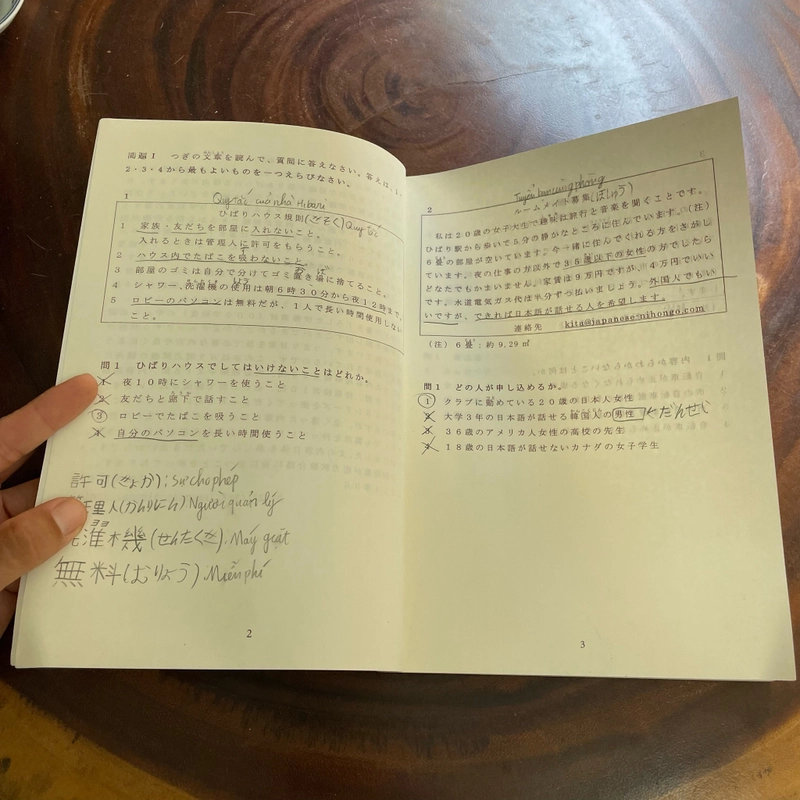 問題1 つぎの文章を読んで、質問に答えなさい。答えは、1・
2・3・4から最もよいものを一つえらびなさい。
1
Quy tắc của nhà Hibari
ひばりハウス規則(きそく) Quy tắc
1 家族・友だちを部屋に入れないこと。
入れるときは管理人に許可をもらうこと。
2 ハウス内でたばこを吸わないこと。
3 部屋のゴミは自分で分けてゴミ置き場に捨てること。
4 シャワー、洗濯機の使用は朝6時30分から夜12時まで。
5 ロビーのパソコンは無料だが、1人で長い時間使用しない
こと。
問1 ひばりハウスでしてはいけないことはどれか。
1 夜10時にシャワーを使うこと
2 友だちと廊下で話すこと
3 ロビーでたばこを吸うこと
4 自分のパソコンを長い時間使うこと
許可(きょか): Sự cho phép
理人(かんりにん) Người quản lý
(せんたくき). Máy giặt
無料(むりょう): Miễn phí
2
2
Tuyển bạn cùng phòng
ルームメイト募集(ぼしゅう)
私は20歳の女子大生で趣味は旅行と音楽を聞くことです。
ひばり駅から歩いて5分の静かなところに住んでいます。(注)
6畳の部屋が空いています。今一緒に住んでくれる方をさがし
ています。夜の仕事の方以外で35歳以下の女性の方でしたら
どなたでもかまいません。家賃は9万円ですが、4万円でいい
です。水道電気ガス代は半分ずつ払いましょう。外国人でもい
いですが、できれば日本語が話せる人を希望します。
連絡先 kita@japanese-nihongo.com
(注)6畳:約9.29㎡
問1 どの人が申し込めるか。
1 クラブに勤めている20歳の日本人女性
2 大学3年の日本語が話せる韓国人の男性 ←だんせい
3 36歳のアメリカ人女性の高校の先生
4 18歳の日本語が話せないカナダの女子学生
3